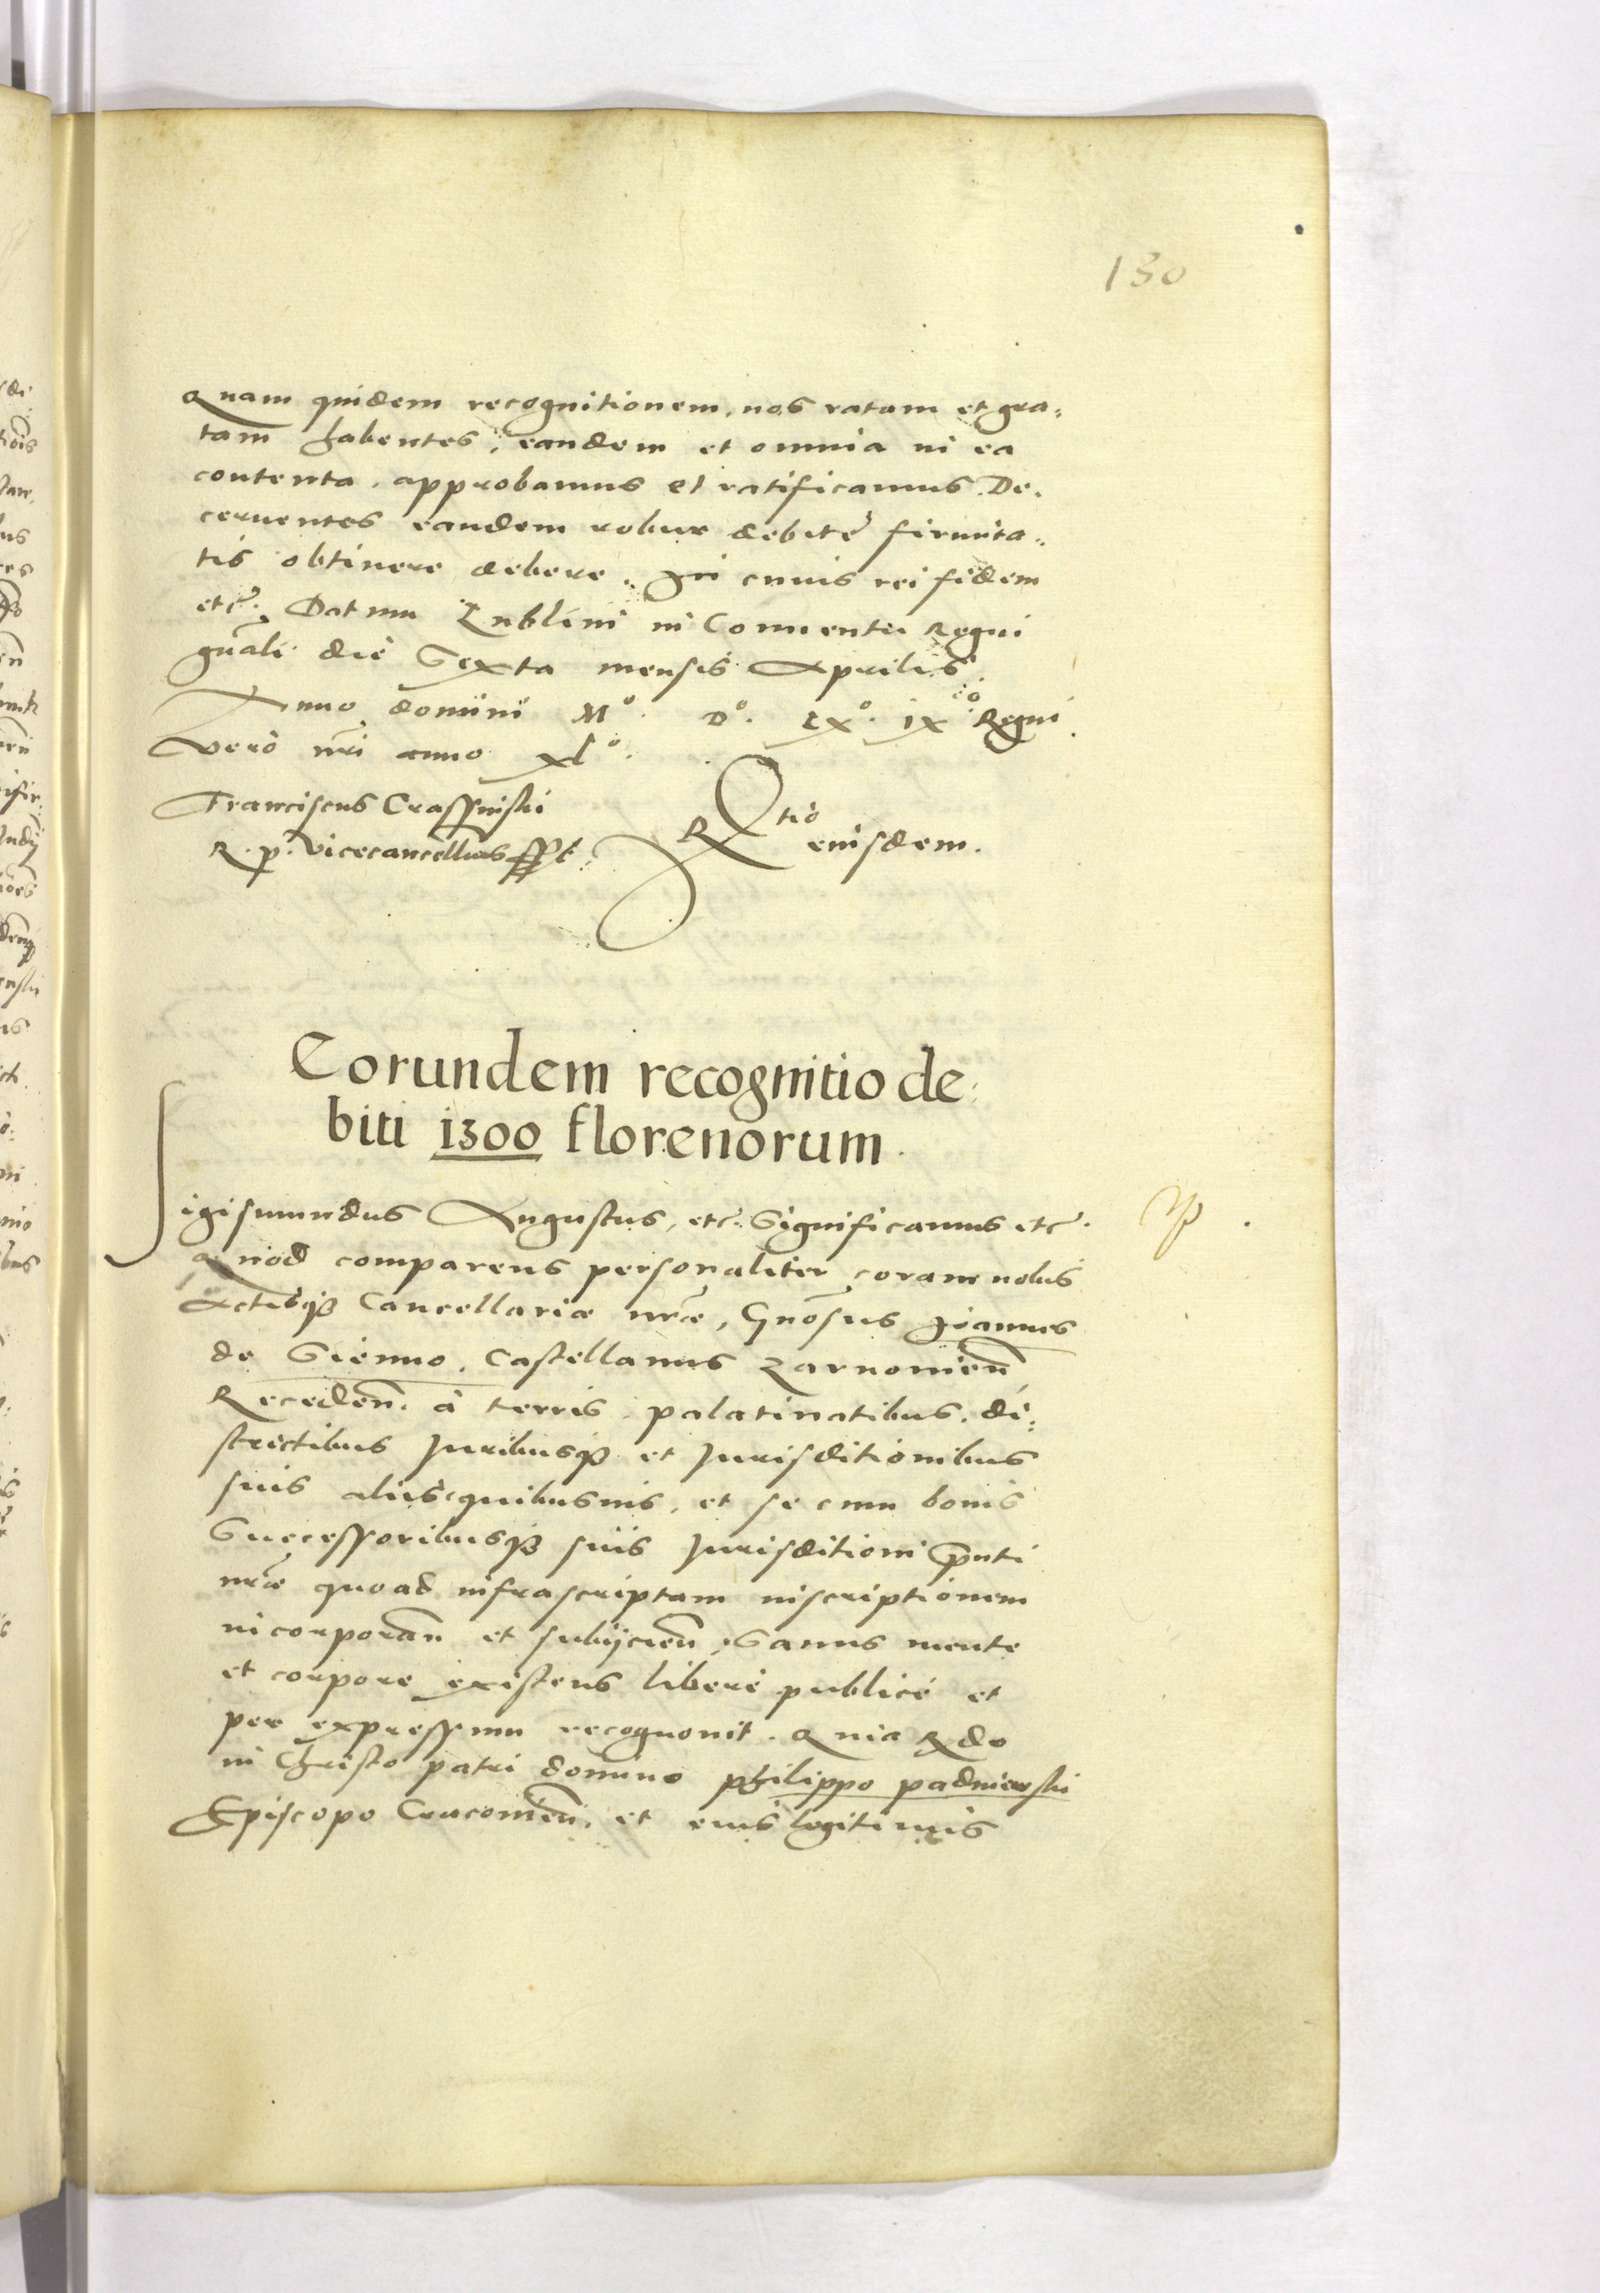 130
Quam quidem recognitionem, nos ratam et gra-
tam habentes, eandem et omnia in ea
contenta, approbamus et ratificamus. De-
cernentes eandem robur debite firmita-
tis obtinere debere. In cuius rei fidem
etc. Datum Lublini in Conuentu Regni
gnali die Sexta mensis Aprilis
Anno domini Mº. Dº. LXº. IXº. Regni
vero nri anno XLº.
Franciscus Crassinski
R. p. Vicecancellarius sspt
Rtio
eiusdem.
Eorundem recognitio de-
biti 1300 florenorum.
Sigismundus Augustus, etc. Significamus etc.
Quod comparens personaliter coram nobis
Actisqz Cancellariæ nræ, Gnosus Ioannes
de Sienno, Castellanus Zarnouien
Receden. à terris palatinatibus, di-
strictibus Juribusqz et Jurisditionibus
suis aliisquibusuis, et se cum bonis
Successoribusqz suis Jurisditioni pnti
nræ quoad infrascriptam inscriptionem
incorporan et subijcien, Sanus mente
et corpore existens liberè publicè et
per expressum recognouit. Quia Rdo
in Christo patri domino Philippo Padniewski
Episcopo Cracouien. et eius legitimis